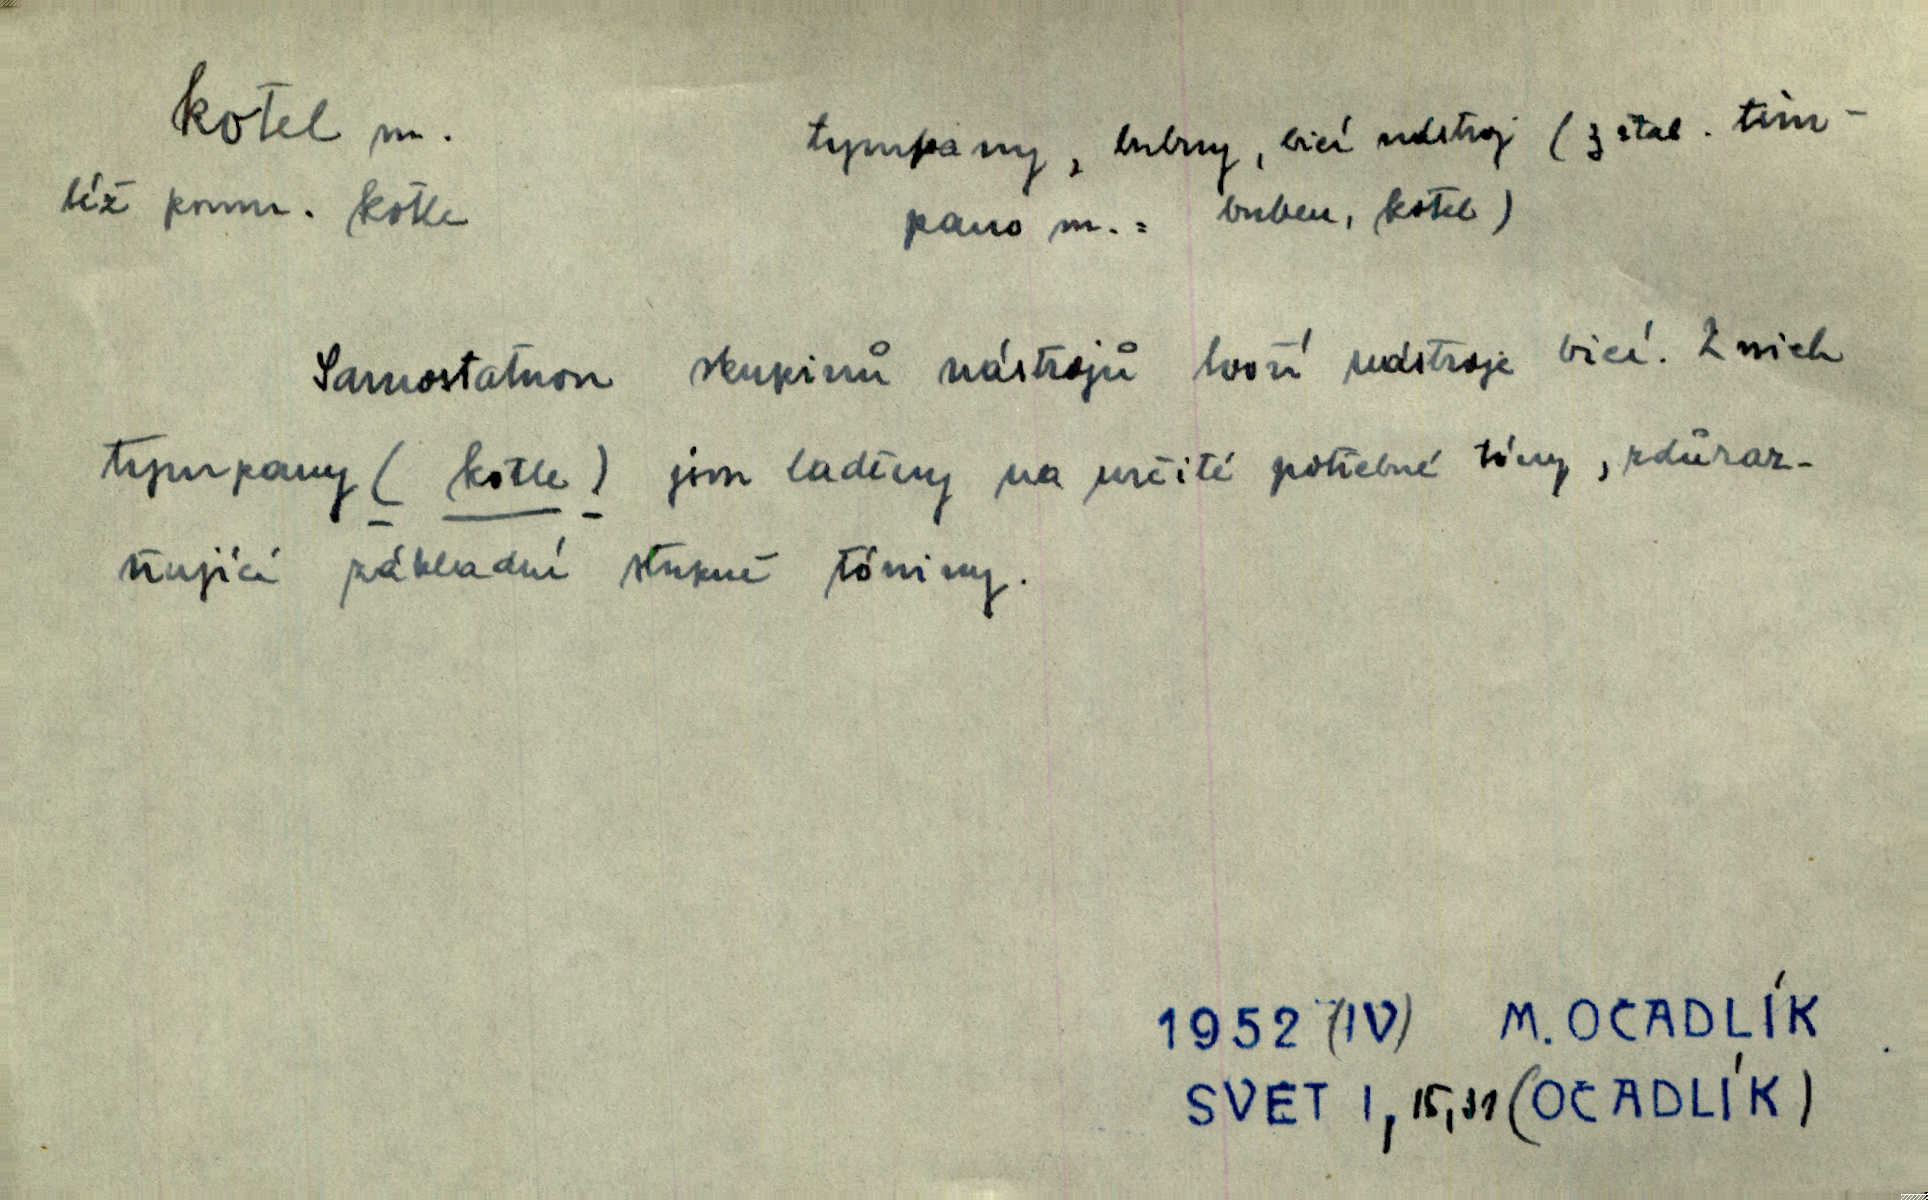 kotel m. tympány, bubny, bicí nástroj (z ital. tim-
též pomn. kotle pano m. = buben, kotel)
Samostatnou skupinu nástrojů tvoří nástroje bicí. Z nich
tympany (kotle) jsou laděny na určité potřebné tóny, zdůraz-
ňující základní stupně tóniny.
1952 (IV) M. OČADLÍK
SVĚT I, 15,31 (OČADLÍK)